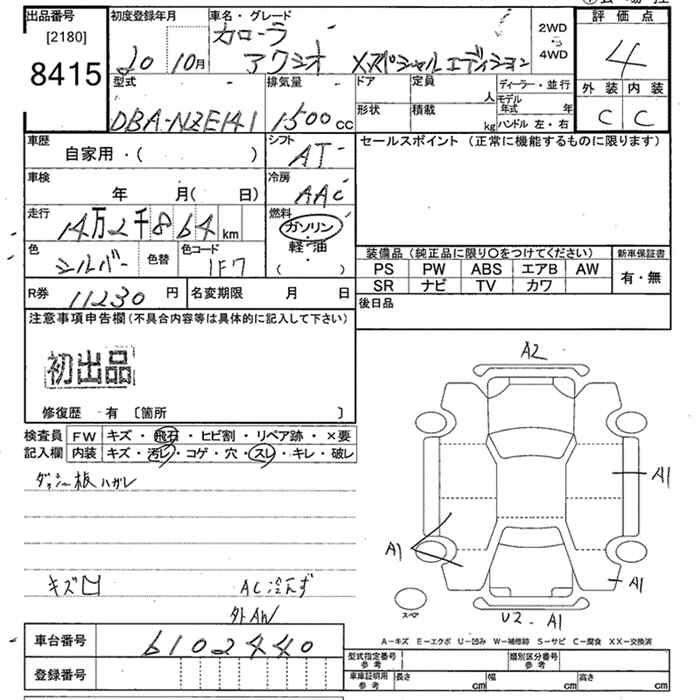 出品番号
[2180]
8415
初度登録年月
20 10月
車名・グレード
カローラ
アクシオ Xスペシャルエディション
2WD
4WD
評価点
4
外装 内装
C C
型式
DBA-NZE141
排気量
1500cc
ドア
定員
人
形状
積載
kg
ディーラー・並行
モデル年式 年
ハンドル 左・右
車歴
自家用・( )
シフト
AT
セールスポイント (正常に機能するものに限ります)
車検
年 月( 日)
冷房
AAC
走行
14万2千864km
燃料
ガソリン
軽・油
( )
色
シルバー
色替
色コード
1F7
装備品 (純正品に限り〇をつけてください)
PS PW ABS エアB AW
SR ナビ TV カワ
新車保証書
有・無
R券
11230円
名変期限 月 日
後日品
注意事項申告欄(不具合内容等は具体的に記入して下さい)
初出品
修復歴・有〔箇所 〕
検査員記入欄
FW キズ・飛石・ヒビ割・リペア跡・×要
内装 キズ・汚レ・コゲ・穴・スレ・キレ・破レ
ダッシュ板ハガレ
キズ
AC冷えず
外AW
A2
A1
A1
A1
スペア
U2- A1
A-キズ E-エクボ U-凹み W-補修跡 S-サビ C-腐食 XX-交換済
車台番号
6102440
登録番号
型式指定番号 参考
類別区分番号 参考
車庫証明用 参考
長さ cm
幅 cm
高さ cm